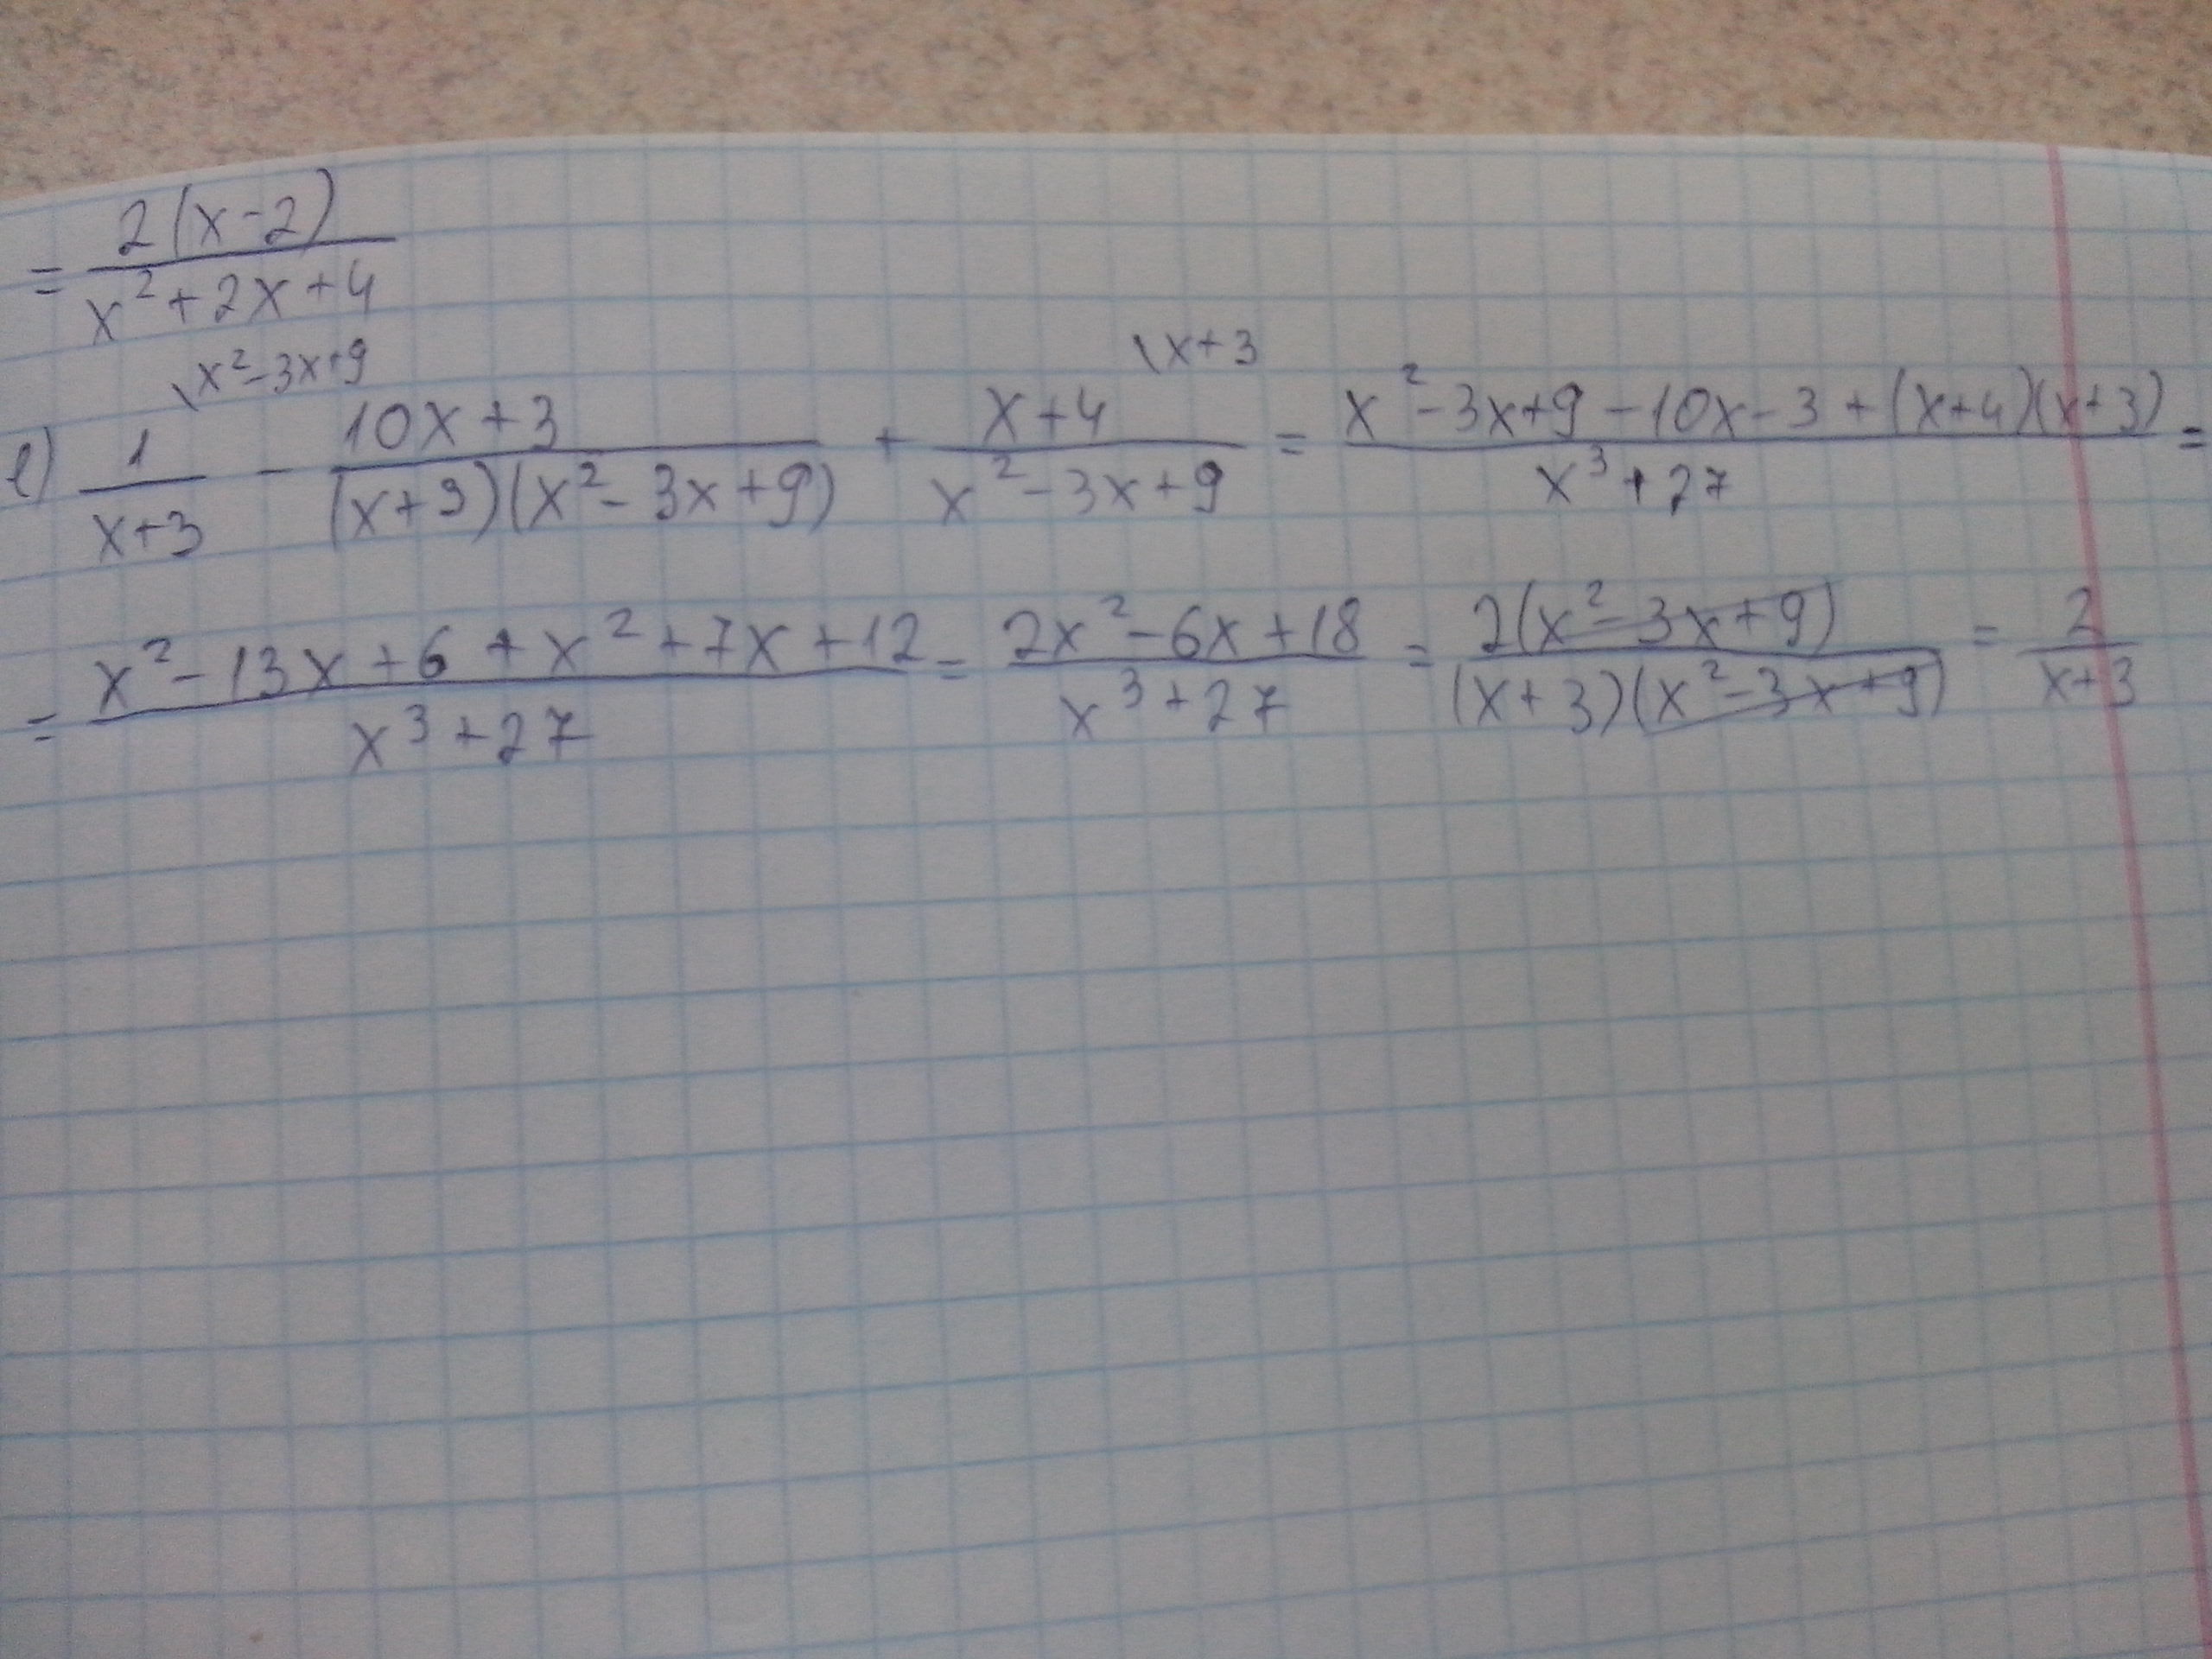 = 2(x-2) / x²+2x+4
\x²-3x+9 \x+3
е) 1/x+3 - 10x+3/(x+3)(x²-3x+9) + x+4/x²-3x+9 = x²-3x+9-10x-3+(x+4)(x+3)/x³+27 =
= x²-13x+6+x²+7x+12/x³+27 = 2x²-6x+18/x³+27 = 2(x²-3x+9)/(x+3)(x²-3x+9) = 2/x+3